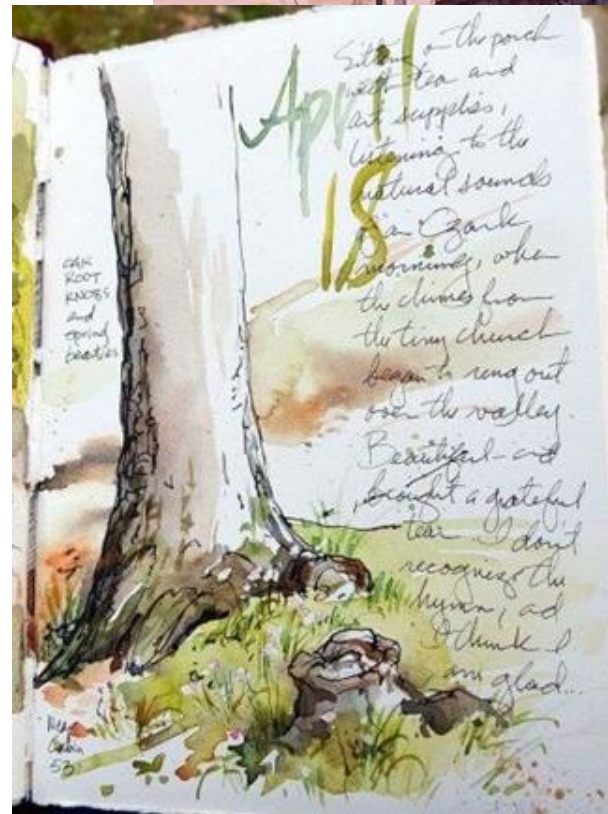 April
18
Sitting on the porch
with tea and
art supplies,
listening to the
natural sounds
of an Ozark
morning, when
the chimes from
the tiny church
began to ring out
over the valley.
Beautiful – and
brought a grateful
tear. I don't
recognize the
hymn, ad
I think I
am glad...
OAK
ROOT
KNOBS
and
spring
beauties
Near
Cabin
53